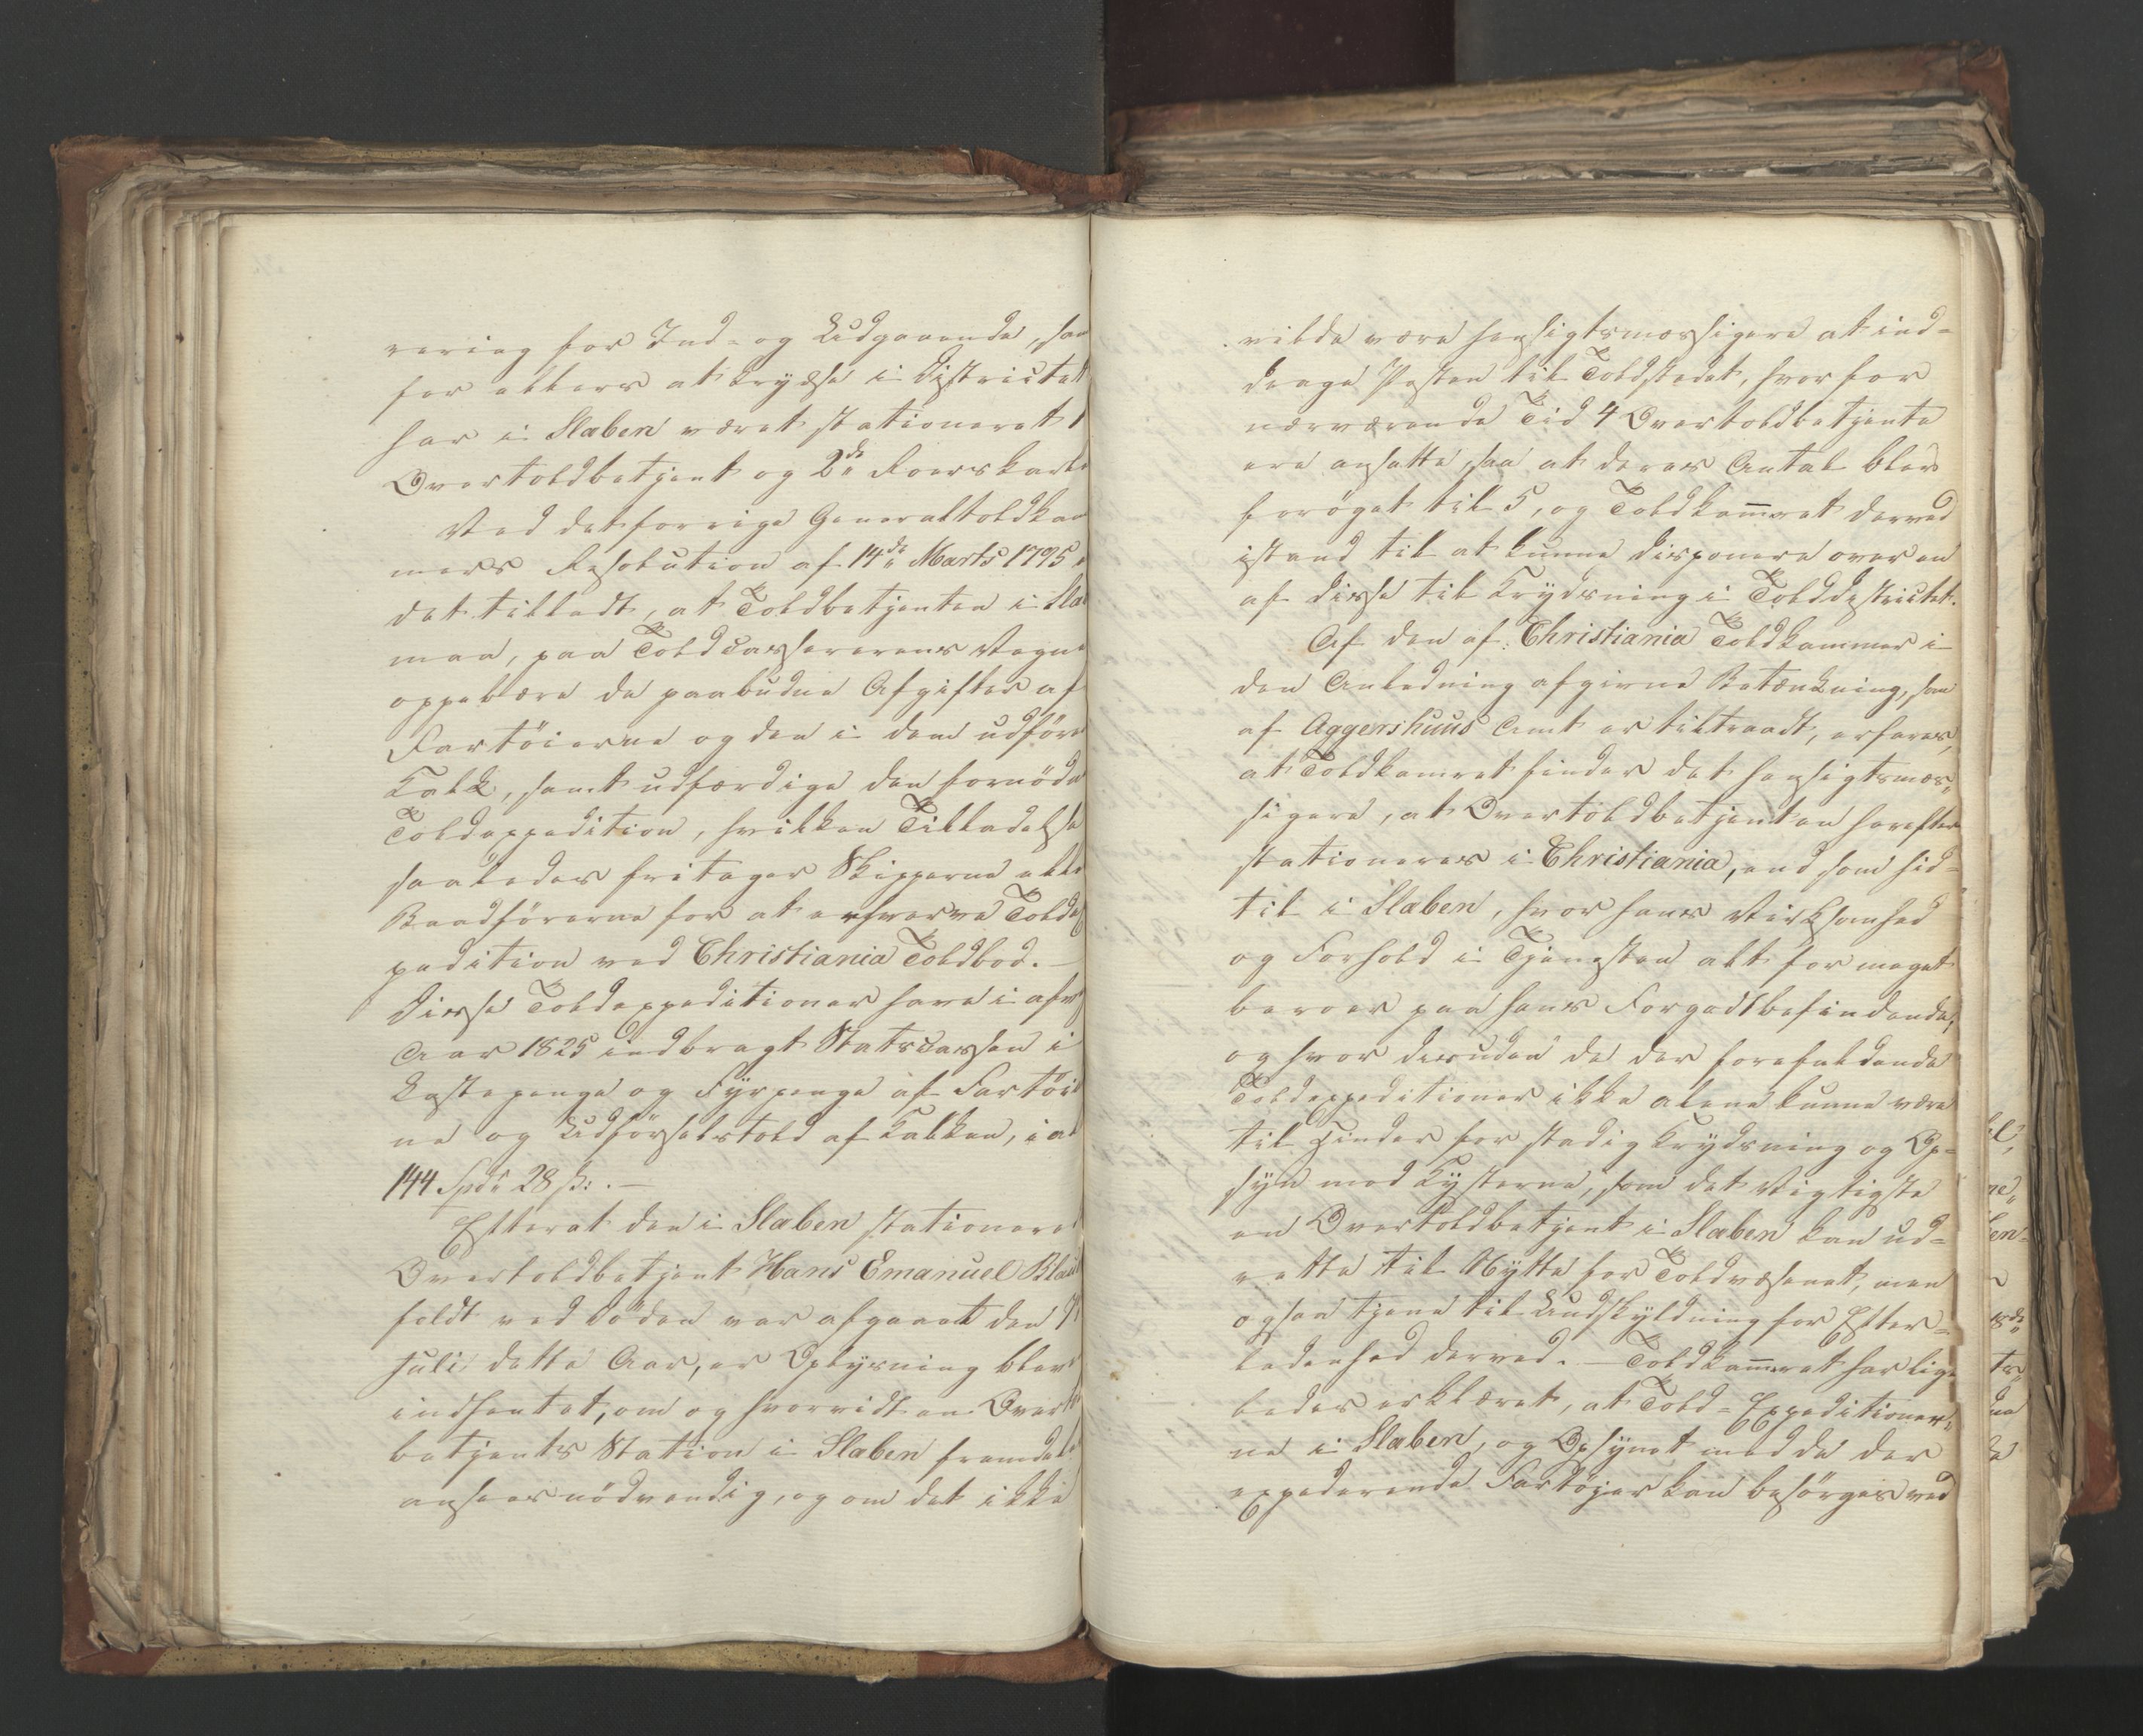 vering for Ind- og Udgaaende, sam
for ellers at krydse i Districtet
har i Slæben været stationeret 1
Overtoldbetjent og 2de Roerskarle
Ved det forrige Generaltoldkam
mers Resolution af 14de Marts 1795 e
det tilladt, at Toldbetjenten i Slæ
maa, paa Toldcassererens Vegne
oppebære de paabudne Afgifter af
Fartöierne og den i dem udföre
Kalk, samt udfærdige den fornödne
Toldexpedition, hvilken Tilladelse
saaledes fritager Skipperne elle
Baadförerne for at erhverve Toldex
pedition ved Christiania Toldbod. —
Disse Toldexpeditioner have i afv
Aar 1825 indbragt Statscassen i
Lastepenge og Fyrpenge af Fartöier
ne og Udförselstold af Kalken, i al
144 Spdr 28 ß:. —
Efterat den i Slæben stationered
Overtoldbetjent Hans Emanuel
feldt ved Döden var afgaaet den
Juli dette Aar, er Oplysning blev
indhentet, om og hvorvidt en Overt
betjents Station i Slæben fremdel
ansees nödvendig, og om det ikke
vilde være hensigtsmæssigere at ind-
drage Posten til Toldstedet, hvor for
nærværende Tid 4 Overtoldbetjente
ere ansatte, saa at deres Antal blev
forøget til 5, og Toldkam̅eret derved
istand til at kunne disponere over en
af disse til Krydsning i Tolddistrictet.
Af den af Christiania Toldkammer i
den Anledning afgivne Betænkning, som
af Aggershuus Amt er tiltraadt, erfares,
at Toldkamret finder det hensigtsmæs„
sigere, at Overtoldbetjenten herefter
stationeres i Christiania, end som hid-
til i Slæben, hvor hans Virksomhed
og Forhold i Tjenesten alt for meget
beroer paa hans Forgodtbefindende,
og hvor desuden de der forefaldende
Toldexpeditioner ikke alene kunne være
til Hinder for stadig Krydsning og Op-
syn med Kysterne, som det Vigtigste
en Overtoldbetjent i Slæben kan ud-
rette til Nytte for Toldvæsenet, men
ogsaa tjene til Undskyldning for Efter-
ladenhed derved. — Toldkam̅eret har lige
ledes erklæret, at Told-Expeditioner„
ne i Slæben, og Opsynet med de der
expederende Fartøjer kan besörges ved